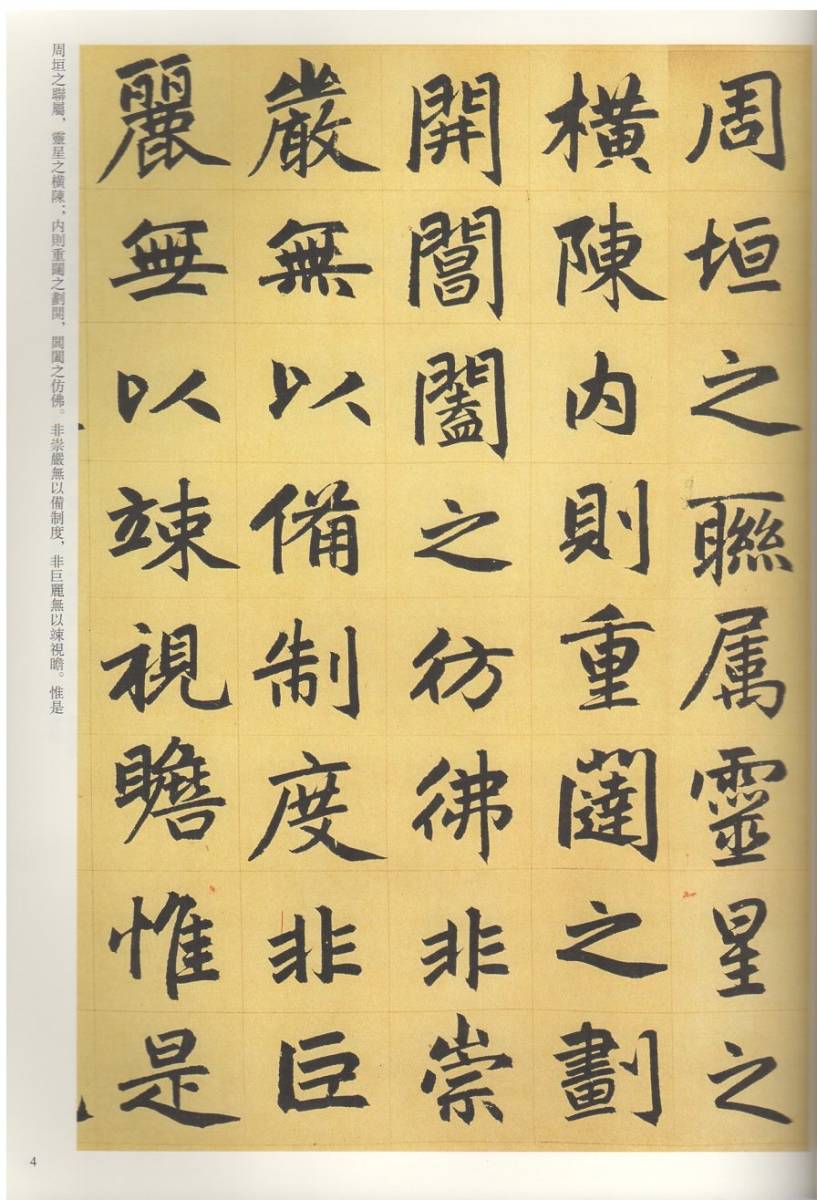 周垣之聯属靈星之
橫陳内則重闥之劃
開閶闔之彷彿非崇
嚴無以備制度非巨
麗無以竦視瞻惟是
周垣之聯屬，靈星之橫陳；内則重闥之劃開，閶闔之仿佛。非崇嚴無以備制度，非巨麗無以竦視瞻。惟是
4